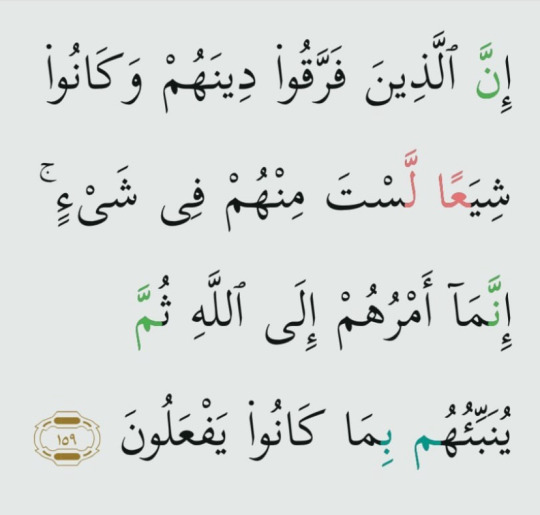 إِنَّ ٱلَّذِينَ فَرَّقُوا۟ دِينَهُمْ وَكَانُوا۟
شِيَعًا لَّسْتَ مِنْهُمْ فِى شَىْءٍ ۚ
إِنَّمَآ أَمْرُهُمْ إِلَى ٱللَّهِ ثُمَّ
يُنَبِّئُهُم بِمَا كَانُوا۟ يَفْعَلُونَ ١٥٩